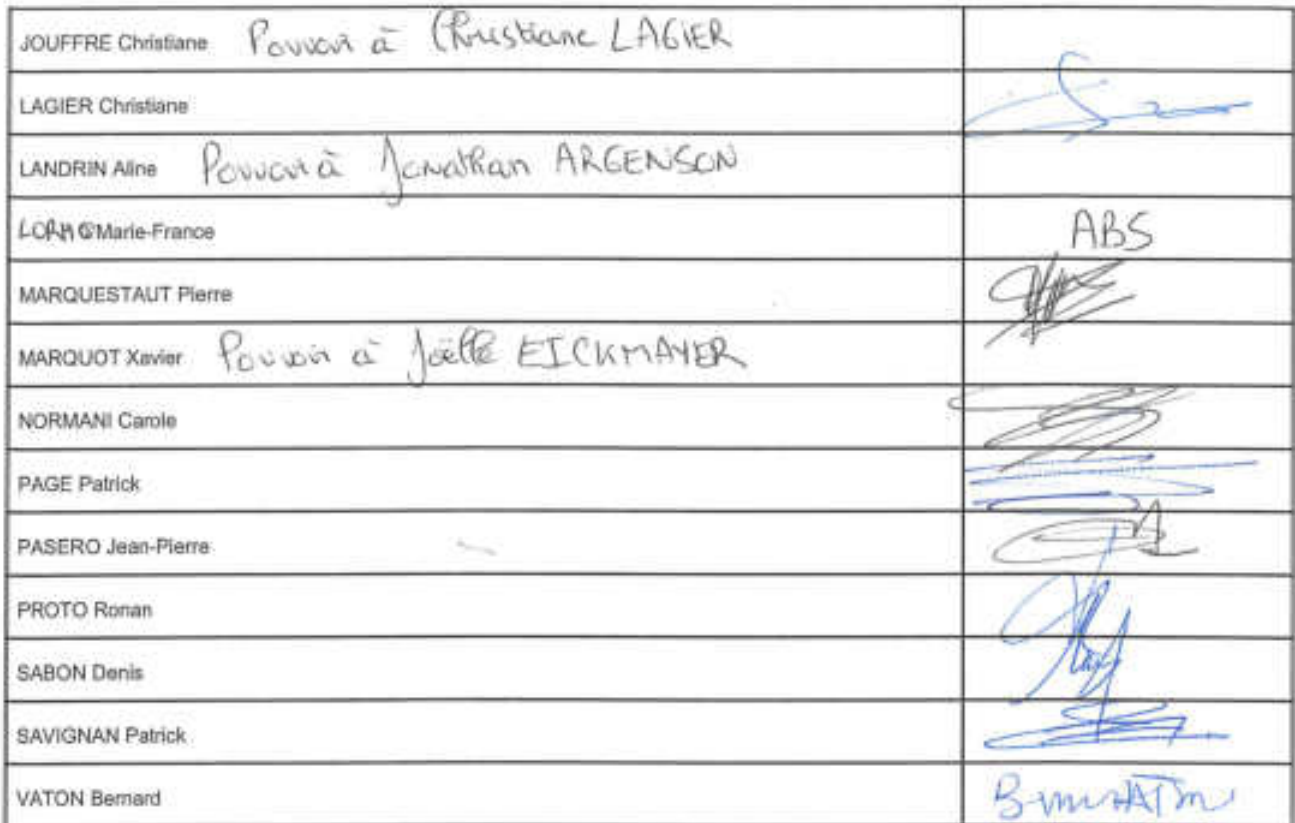 JOUFFRE Christiane Pouvoir à Christiane LAGIER
LAGIER Christiane
LANDRIN Aline Pouvoir à Jonathan ARGENSON
LORM@Marie-France ABS
MARQUESTAUT Pierre
MARQUOT Xavier Pouvoir à Joëlle EICKMAYER
NORMANI Carole
PAGE Patrick
PASERO Jean-Pierre
PROTO Ronan
SABON Denis
SAVIGNAN Patrick
VATON Bernard